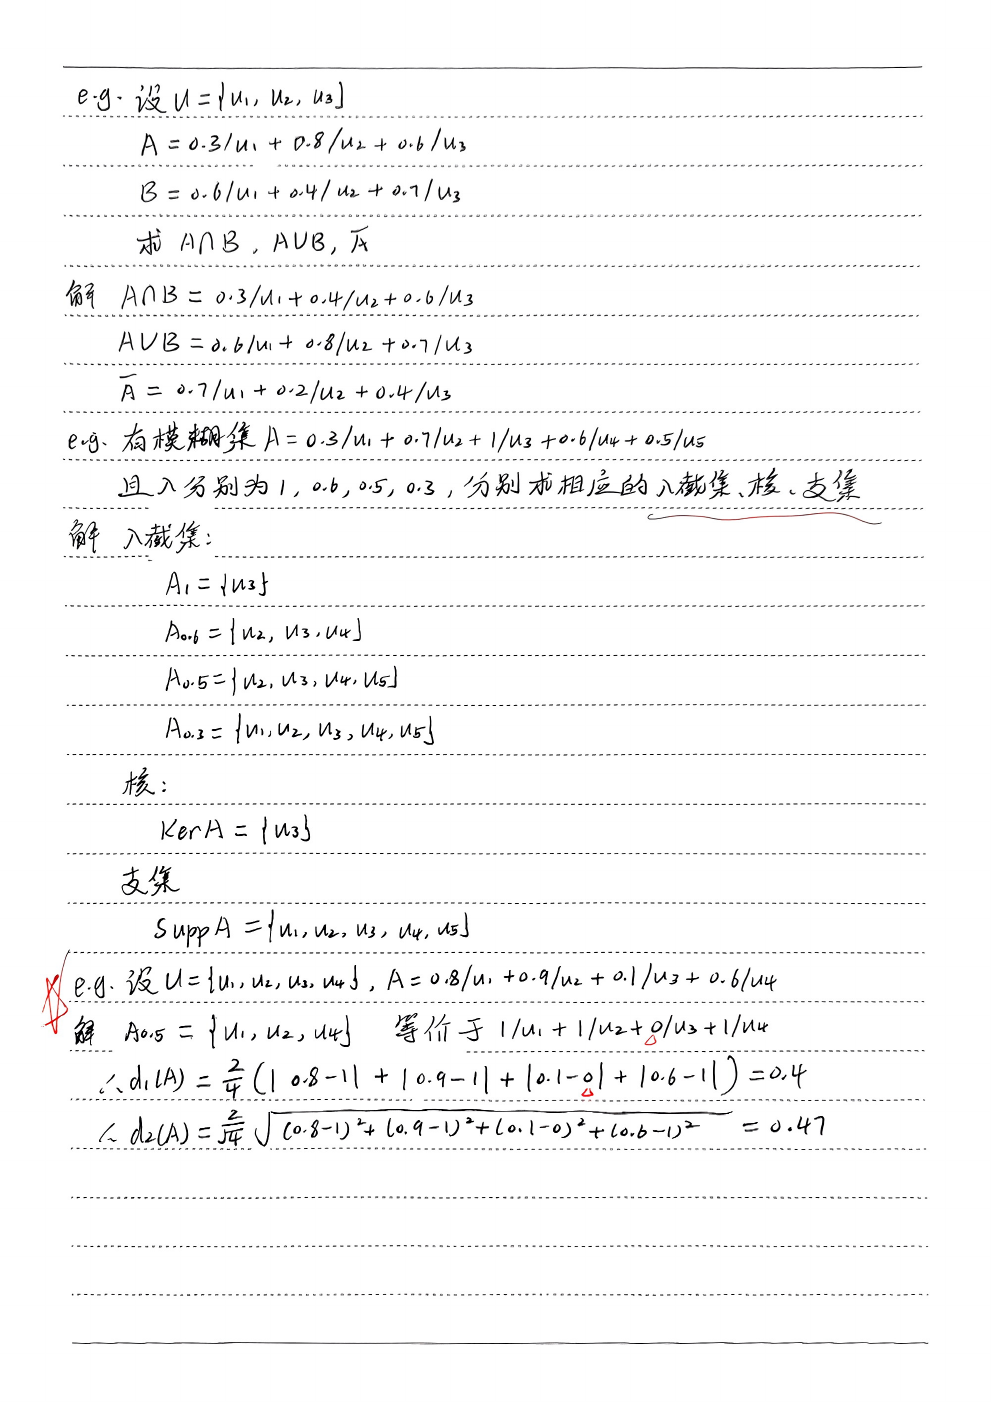 e.g. 设 U = {u₁, u₂, u₃}
A = 0.3/u₁ + 0.8/u₂ + 0.6/u₃
B = 0.6/u₁ + 0.4/u₂ + 0.7/u₃
求 A∩B, A∪B, A̅
解 A∩B = 0.3/u₁ + 0.4/u₂ + 0.6/u₃
A∪B = 0.6/u₁ + 0.8/u₂ + 0.7/u₃
A̅ = 0.7/u₁ + 0.2/u₂ + 0.4/u₃
e.g. 有模糊集 A = 0.3/u₁ + 0.7/u₂ + 1/u₃ + 0.6/u₄ + 0.5/u₅
且λ分别为1, 0.6, 0.5, 0.3, 分别求相应的λ截集、核、支集
解 λ截集:
A₁ = {u₃}
A₀.₆ = {u₂, u₃, u₄}
A₀.₅ = {u₂, u₃, u₄, u₅}
A₀.₃ = {u₁, u₂, u₃, u₄, u₅}
核:
KerA = {u₃}
支集
SuppA = {u₁, u₂, u₃, u₄, u₅}
e.g. 设 U = {u₁, u₂, u₃, u₄}, A = 0.8/u₁ + 0.9/u₂ + 0.1/u₃ + 0.6/u₄
解 A₀.₅ = {u₁, u₂, u₄} 等价于 1/u₁ + 1/u₂ + 0/u₃ + 1/u₄
∴ d₁(A) = 2/4 (|0.8-1| + |0.9-1| + |0.1-0| + |0.6-1|) = 0.4
∴ d₂(A) = 2/√4 √((0.8-1)² + (0.9-1)² + (0.1-0)² + (0.6-1)²) = 0.47